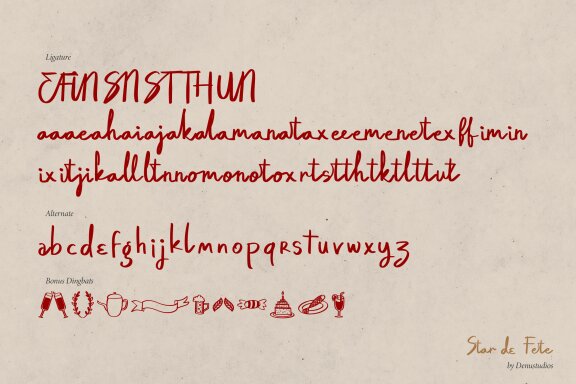 Ligature
EAFINSNSTTHUN
aaaeahaiajakalamanataxeeemenetexffimin
ixitjikallltnnomonotoxrtstthtktlttut
Alternate
abcdefghijklmnopqrstuvwxyz
Bonus Dingbats
Star de Fete
by Denustudios